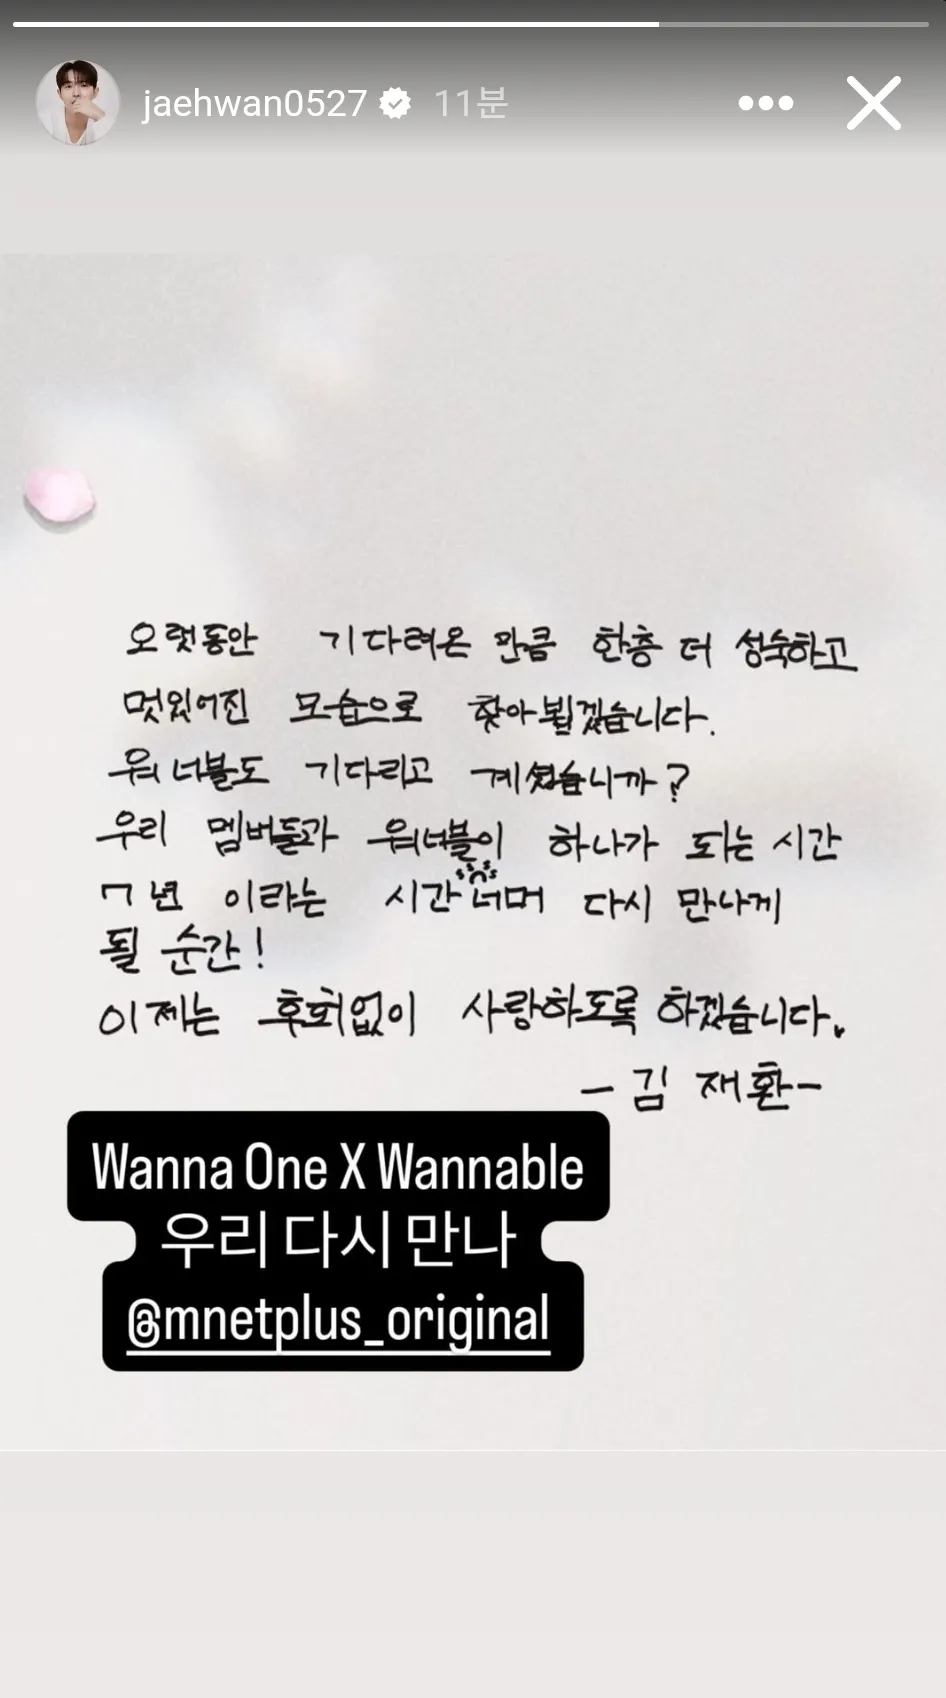 jaehwan0527 11분
오랫동안 기다려온 만큼 한층 더 성숙하고
멋있어진 모습으로 찾아뵐겠습니다.
워너블도 기다리고 계셨습니까?
우리 멤버들과 워너블이 하나가 되는 시간
7년 이라는 시간 너머 다시 만나게
될 순간!
이제는 후회없이 사랑하도록 하겠습니다.
-김 재환-
Wanna One X Wannable
우리 다시 만나
@mnetplus_original